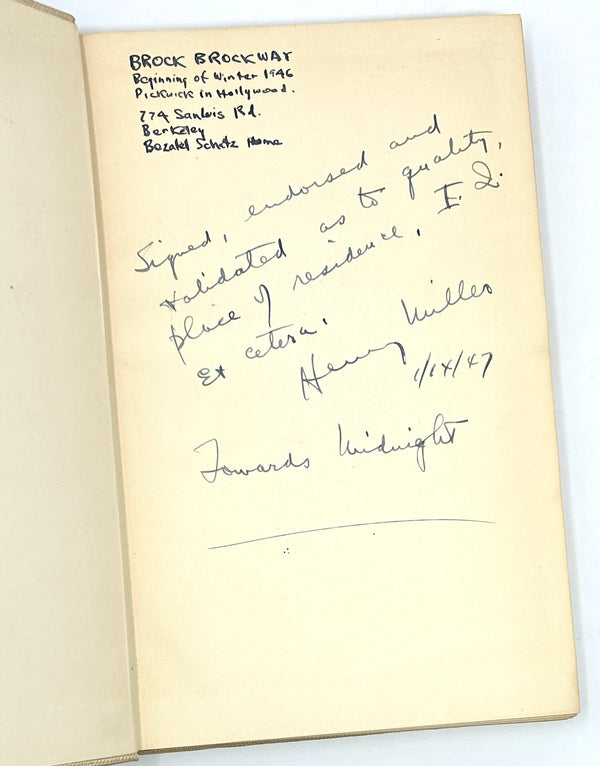 BROCK BROCKWAY
Beginning of Winter 1946
Pickwick in Hollywood.
774 SanLuis Rd.
Berkeley
Bezalel Schatz Home
Signed, endorsed and
validated as to quality,
place of residence, I. Q.
et cetera.
Henry Miller
1/14/47
Towards Midnight